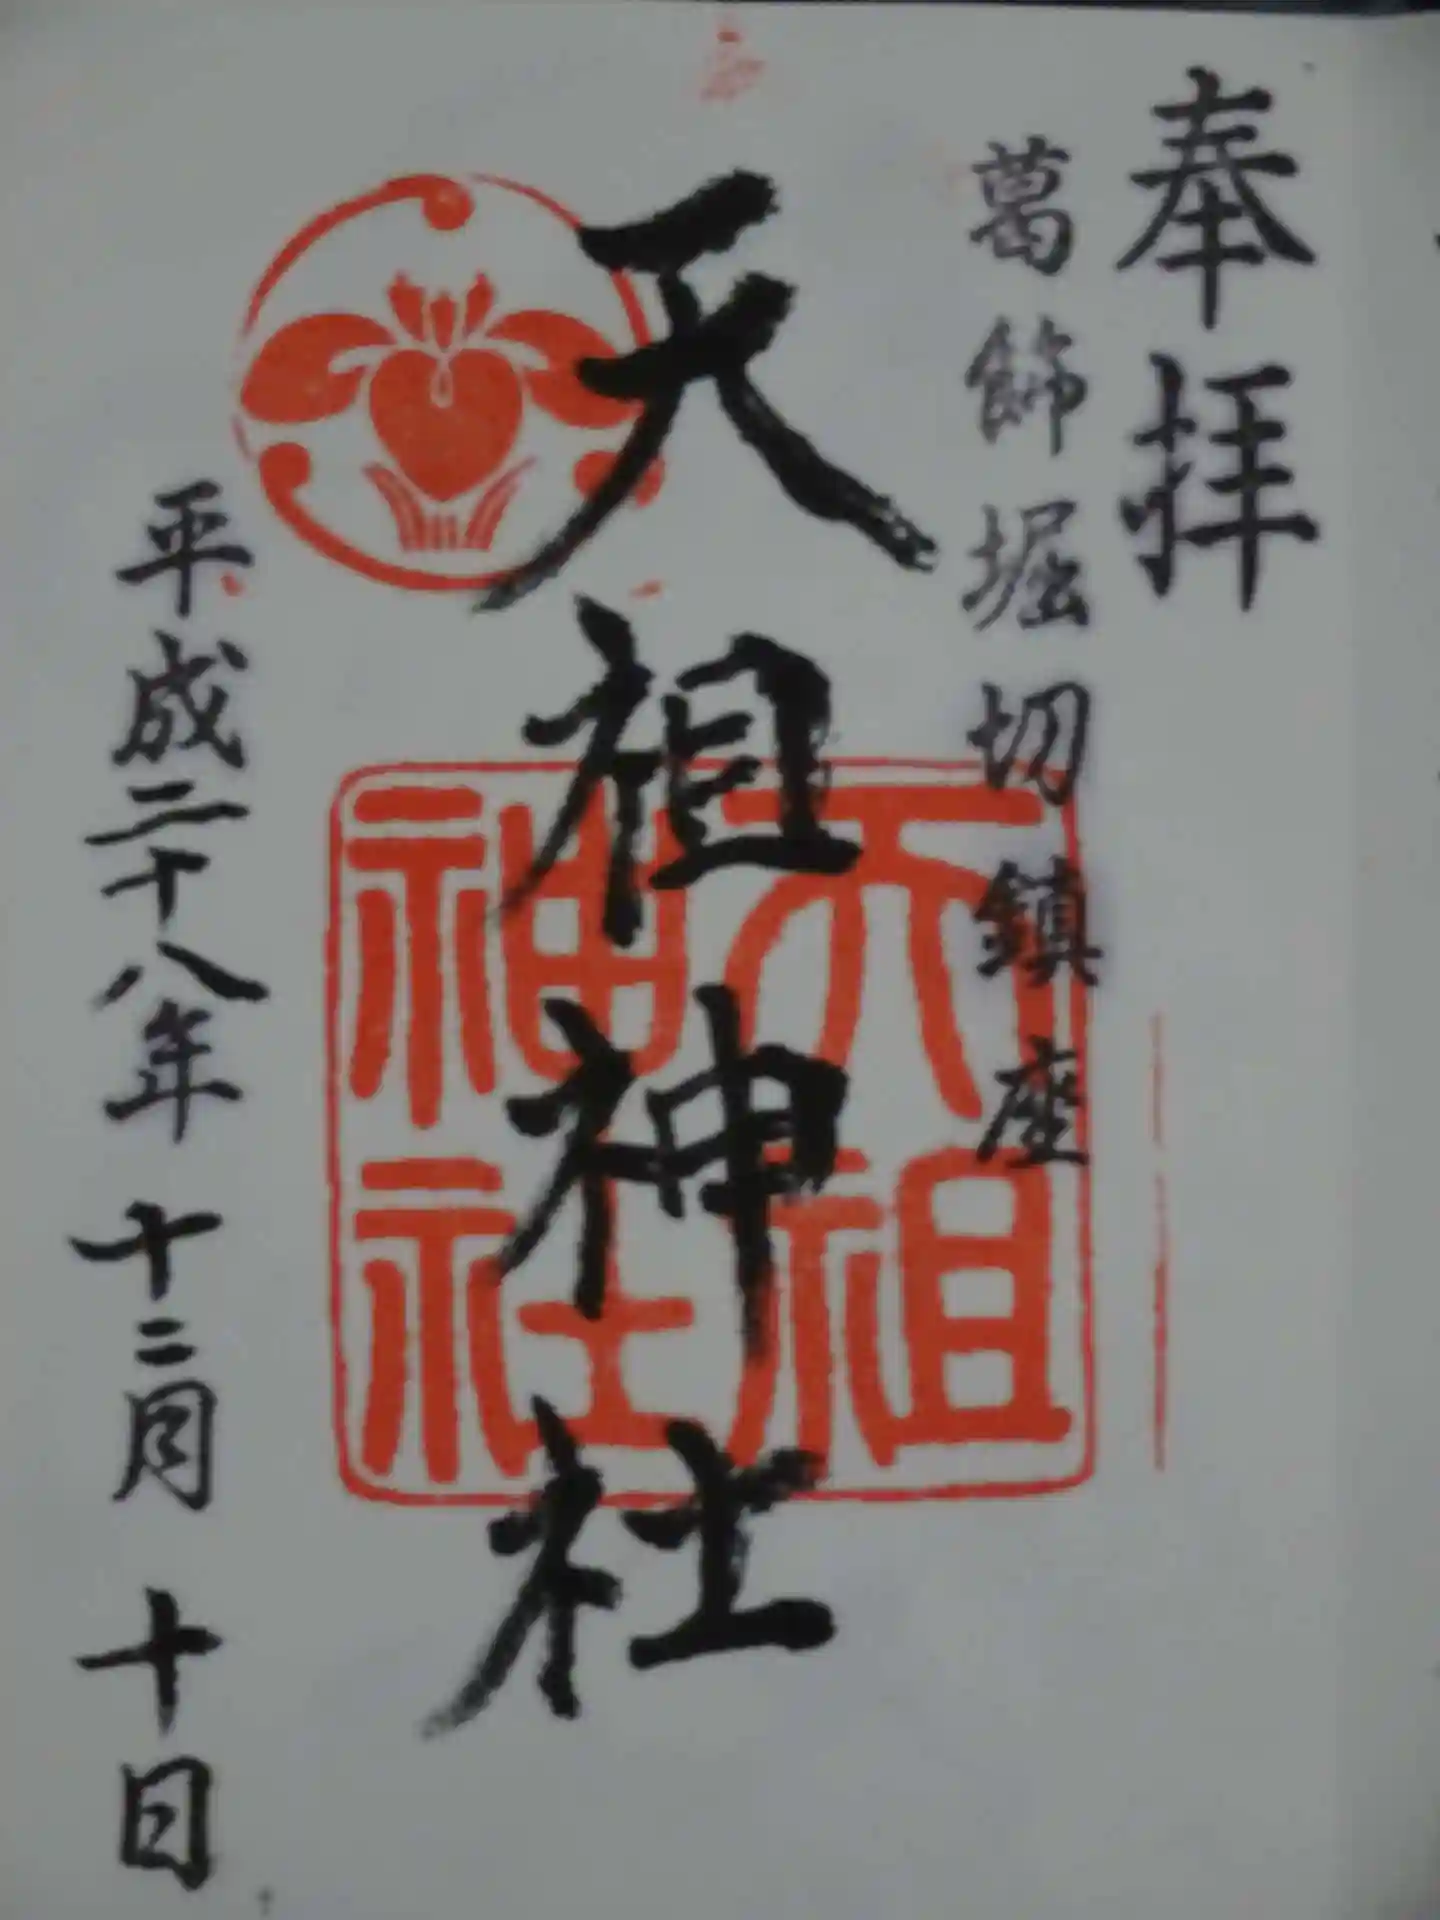 奉拝
葛飾堀切鎮座
天祖神社
天祖
神社
平成二十八年十二月十日